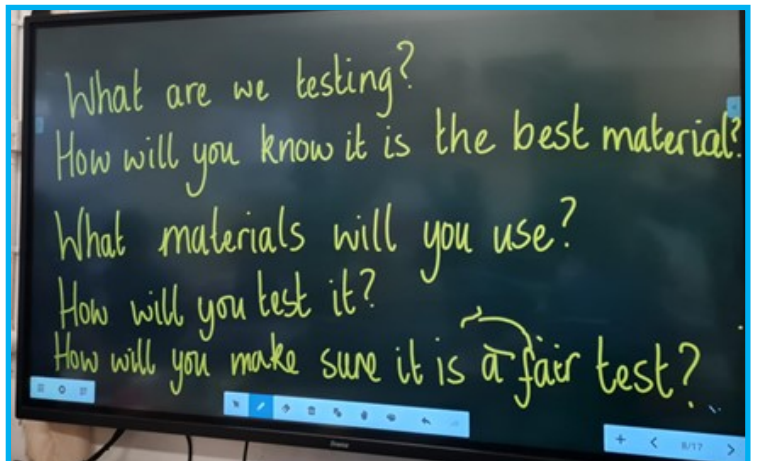 What are we testing?
How will you know it is the best material?
What materials will you use?
How will you test it?
How will you make sure it is a fair test?
8/17